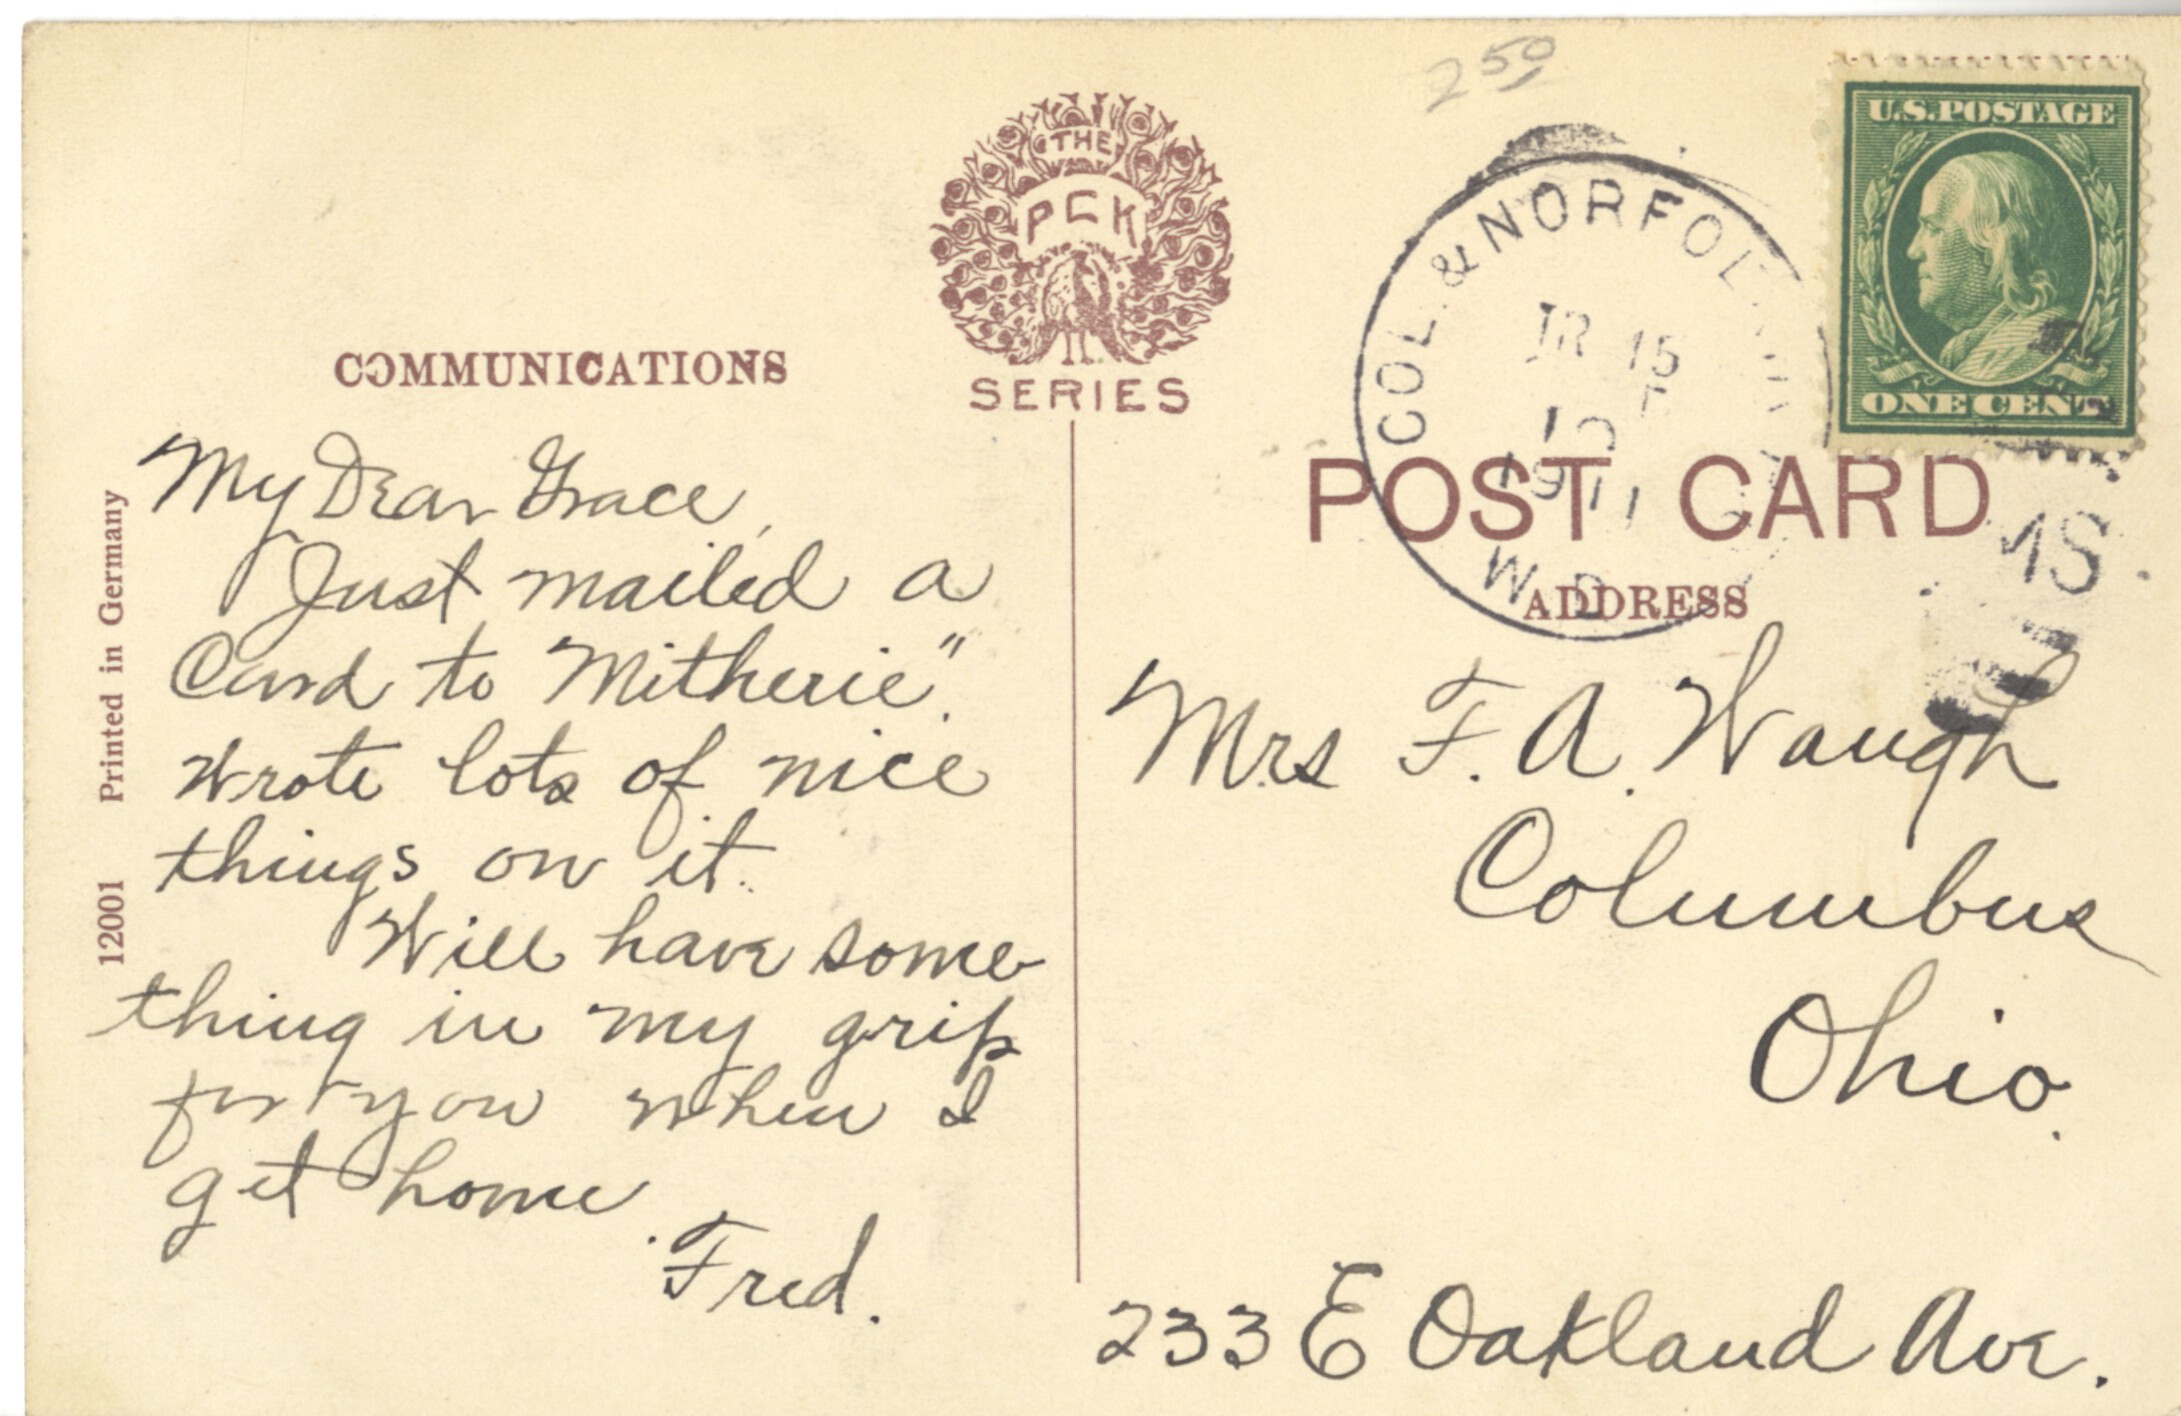 2 50
U.S.POSTAGE
ONE CENT
THE
PCK
SERIES
COL. & NORFOL
15
1911
W.D.
COMMUNICATIONS
POST CARD
ADDRESS
12001 Printed in Germany
My Dear Grace,
Just mailed a
Card to "Mitherie".
Wrote lots of nice
things on it.
Will have some-
thing in my grip
for you when I
get home.
Fred.
Mrs F. A. Waugh
Columbus
Ohio.
233 E Oakland Ave.